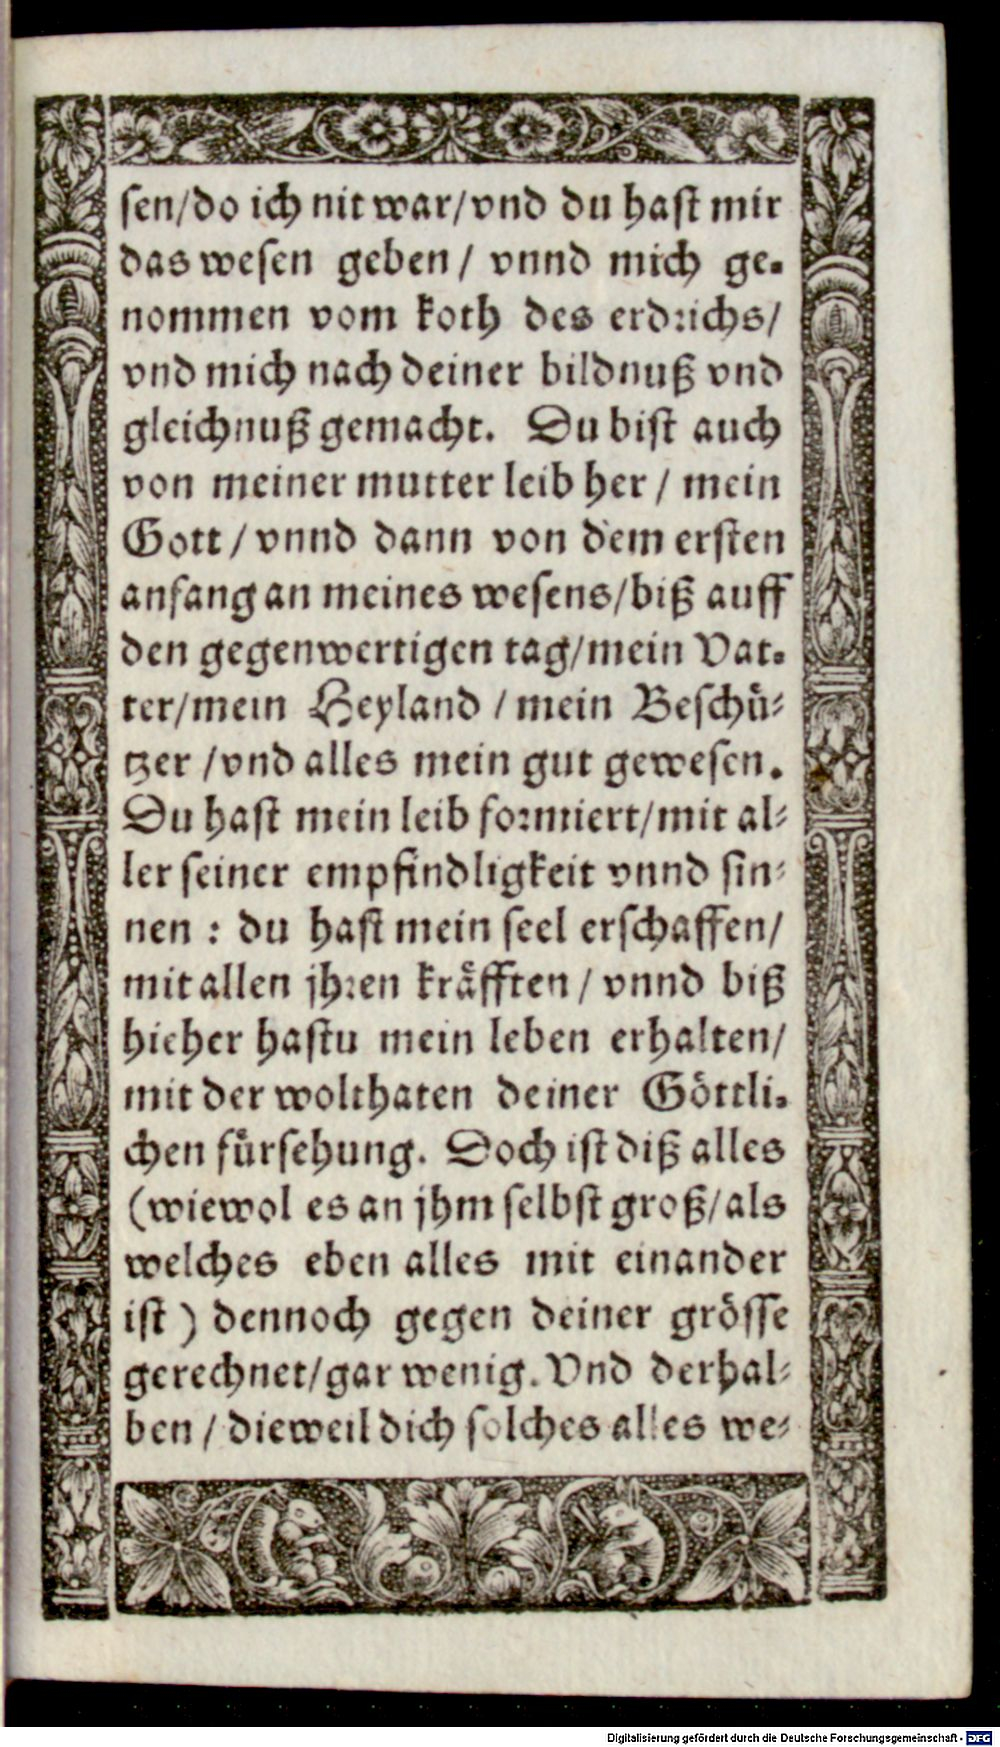 sen/do ich nit war/vnd du hast mir
das wesen geben / vnnd mich ge-
nommen vom koth des erdrichs/
vnd mich nach deiner bildnuß vnd
gleichnuß gemacht. Du bist auch
von meiner mutter leib her / mein
Gott / vnnd dann von dem ersten
anfang an meines wesens/biß auff
den gegenwertigen tag/mein Vat-
ter/mein Heyland / mein Beschü-
tzer /vnd alles mein gut gewesen.
Du hast mein leib formiert/mit al-
ler seiner empfindligkeit vnnd sin-
nen : du hast mein seel erschaffen/
mit allen jhren kräfften / vnnd biß
hieher hastu mein leben erhalten/
mit der wolthaten deiner Göttli-
chen fürsehung. Doch ist diß alles
(wiewol es an jhm selbst groß/als
welches eben alles mit einander
ist ) dennoch gegen deiner grösse
gerechnet/gar wenig. Vnd derhal-
ben / dieweil dich solches alles we-
Digitalisierung gefördert durch die Deutsche Forschungsgemeinschaft - DFG